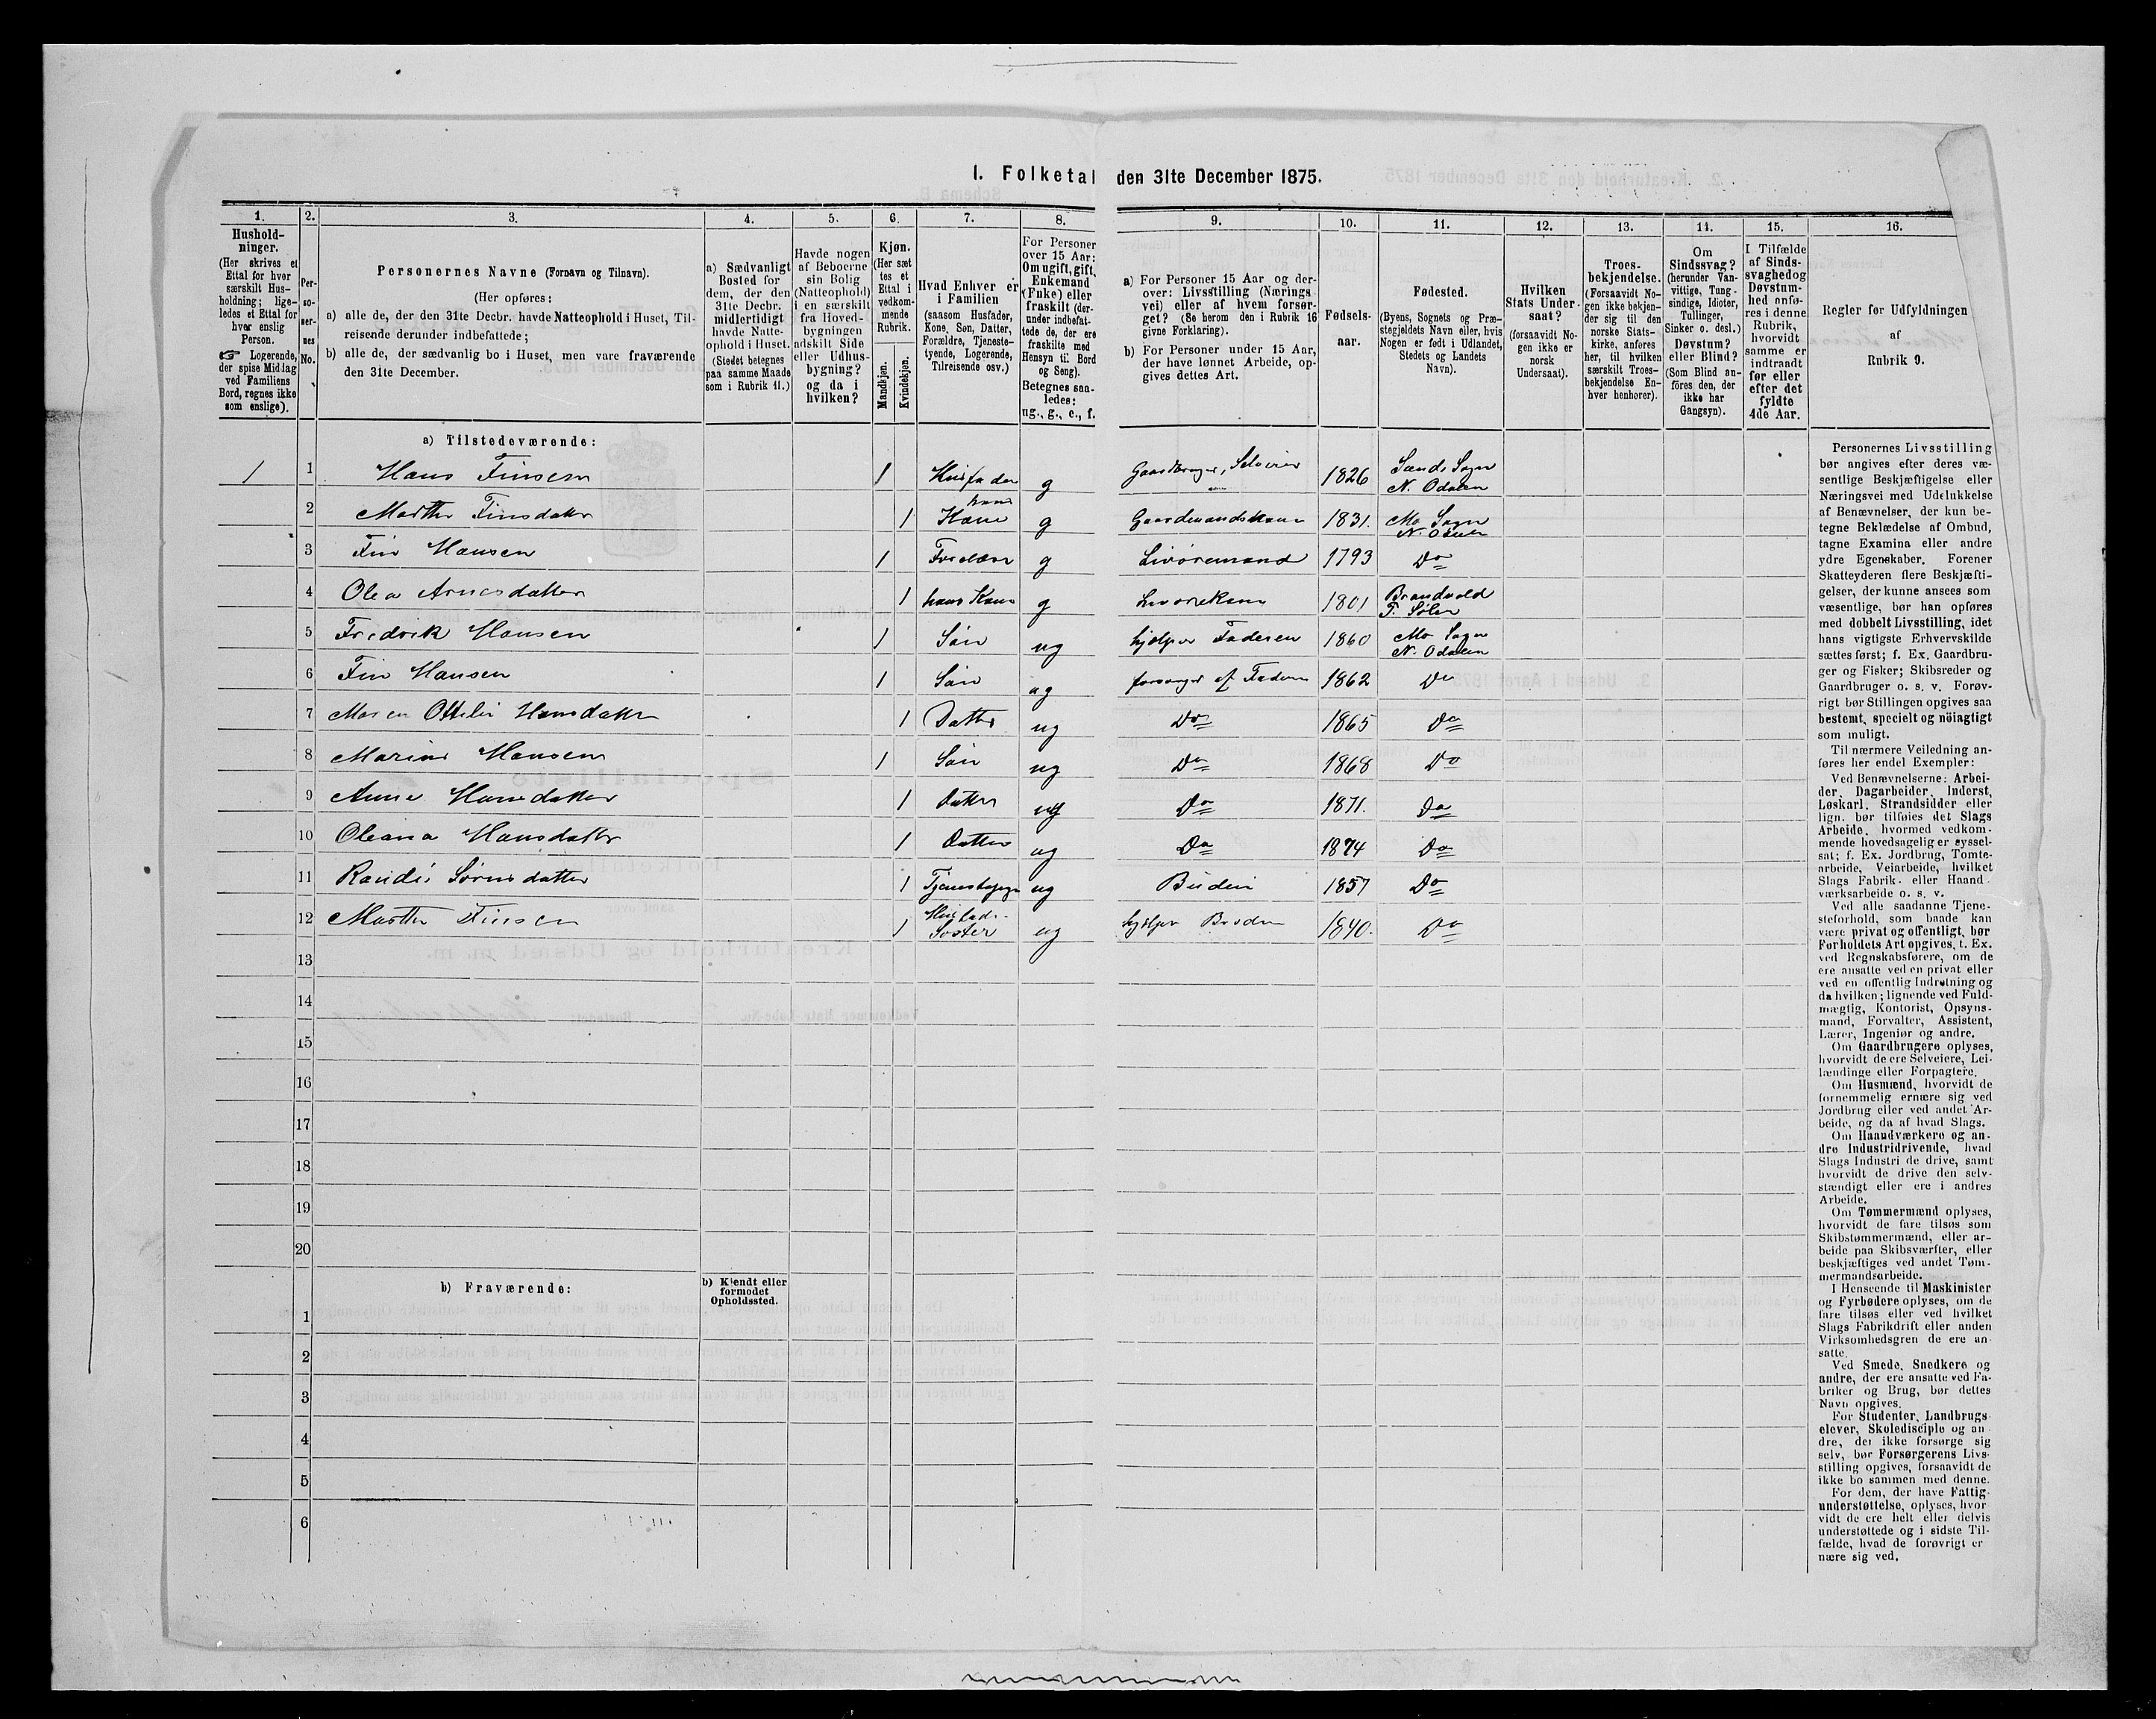 1. Folketal den 31te December 1875.
1.
Hushold-
ninger.
(Her skrives et
Ettal for hver
særskilt Hus-
holdning; lige-
ledes et Ettal for
hver enslig
Person.
☞ Logerende,
der spise Middag
ved Familiens
Bord, regnes ikke
som enslige).
2.
Per-
so-
ner-
nes
No.
3.
Personernes Navne (Fornavn og Tilnavn).
(Her opføres:
a) alle de, der den 31te Decbr. havde Natteophold i Huset, Til-
reisende derunder indbefattede;
b) alle de, der sædvanlig bo i Huset, men vare fraværende
den 31te December.
4.
a) Sædvanligt
Bosted for
dem, der den
31te Decbr.
midlertidigt
havde Natte-
ophold i Huset.
(Stedet betegnes
paa samme Maade
som i Rubrik 11.)
5.
Havde nogen
af Beboerne
sin Bolig
(Natteophold)
i en særskilt
fra Hoved-
bygningen
adskilt Side
eller Udhus-
bygning?
og da i
hvilken?
6.
Kjøn.
(Her sæt
tes et
Ettal i
vedkom-
mende
Rubrik.
Mandkjøn.
Kvindekjøn.
7.
Hvad Enhver er
i Familien
(saasom Husfader,
Kone, Søn, Datter,
Forældre, Tjeneste-
tyende, Logerende,
Tilreisende osv.)
8.
For Personer
over 15 Aar:
Om ugift, gift,
Enkemand
(Enke) eller
fraskilt (der-
under indbefat-
tede de, der ere
fraskilte med
Hensyn til Bord
og Seng).
Betegnes saa-
ledes:
ug., g., e., f.
9.
a) For Personer 15 Aar og der-
over: Livsstilling (Nærings
vei) eller af hvem forsør-
get? (Se herom den i Rubrik 16
givne Forklaring).
b) For Personer under 15 Aar,
der have lønnet Arbeide, op-
gives dettes Art.
10.
Fødsels-
aar.
11.
Fødested.
(Byens, Sognets og Præ-
stegjeldets Navn eller, hvis
Nogen er født i Udlandet,
Stedets og Landets
Navn).
12.
Hvilken
Stats Under-
saat?
(forsaavidt No-
gen ikke er
norsk
Undersaat).
13.
Troes-
bekjendelse.
(Forsaavidt No-
gen ikke bekjen-
der sig til den
norske Stats-
kirke, anføres
her, til hvilken
særskilt Troes-
bekjendelse En-
hver henhører).
14.
Om
Sindssvag?
(herunder Van-
vittige, Tung-
sindige, Idioter,
Tullinger,
Sinker o. desl.)
Døvstum?
eller Blind?
(Som Blind an-
føres den, der
ikke har
Gangsyn).
15.
I Tilfælde
af Sinds-
svaghed og
Døvstum-
hed anfø-
res i denne
Rubrik,
hvorvidt
samme er
indtraadt
før eller
efter det
fyldte
4de Aar.
16.
Regler for Udfyldningen
af
Rubrik 9.
a) Tilstedeværende:
1 1 Hans Finsen 1 Husfader g Gaardbruger, Selveier 1826 Sands Sogn N. Odalen
2 Marthe Finsdatter 1 hans Kone g Gaardmandskone 1831. Mo Sogn N. Odalen
3 Fin Hansen 1 Forældre g Livøremand 1793 Do
4 Olea Arnesdatter 1 hans Kone g Livørekone 1801 Brandvold P. Soløer
5 Fredrik Hansen 1 Søn ug hjælper Faderen 1860 Mo Sogn N. Odalen
6 Fin Hansen 1 Søn ug forsørges af Faderen 1862 Do
7 Maren Ottilie Hansdatter 1 Datter ug Do 1865 Do
8 Marius Hansen 1 Søn ug Do 1868 Do
9 Anne Hansdatter 1 Datter ug Do 1871. Do
10 Oleana Hansdatter 1 Datter ug Do 1874 Do
11 Randi 1 ug Budeie 1857 Do
12 Marthe Finsen 1 Husfad. Søster ug hjelper Broderen 1840. Do
13
14
15
16
17
18
19
20
b) Fraværende:
b) Kjendt eller
formodet
Opholdssted.
1
2
3
4
5
6
Personernes Livsstilling
bør angives efter deres væ-
sentlige Beskjæftigelse eller
Næringsvei med Udelukkelse
af Benævnelser, der kun be-
tegne Beklædelse af Ombud,
tagne Examina eller andre
ydre Egenskaber. Forener
Skatteyderen flere Beskjæfti-
gelser, der kunne ansees som
væsentlige, bør han opføres
med dobbelt Livsstilling, idet
hans vigtigste Erhvervskilde
sættes først; f. Ex. Gaardbru-
ger og Fisker; Skibsreder og
Gaardbruger o. s. v. Forøv-
rigt bør Stillingen opgives saa
bestemt, specielt og nöiagtigt
som muligt.
Til nærmere Veiledning an-
føres her endel Exempler:
Ved Benævnelserne: Arbei-
der, Dagarbeider, Inderst,
Løskarl, Strandsidder eller
lign. bør tilføies det Slags
Arbeide, hvormed vedkom-
mende hovedsagelig er syssel-
sat; f. Ex. Jordbrug, Tomte-
arbeide, Veiarbeide, hvilket
Slags Fabrik- eller Haand-
værksarbeide o. s. v.
Ved alle saadanne Tjene-
steforhold, som baade kan
være privat og offentligt, bør
Forholdets Art opgives, t. Ex.
ved Regnskabsførere, om de
ere ansatte ved en privat eller
ved en offentlig Indretning og
da hvilken; lignende ved Fuld-
mægtig, Kontorist, Opsyns-
mand, Forvalter, Assistent,
Lærer, Ingeniør og andre.
Om Gaardbrugere oplyses,
hvorvidt de ere Selveiere, Lei-
lændinge eller Forpagtere.
Om Husmænd, hvorvidt de
fornemmelig ernære sig ved
Jordbrug eller ved andet Ar-
beide, og da af hvad Slags.
Om Haandværkere og an-
dre Industridrivende, hvad
Slags Industri de drive, samt
hvorvidt de drive den selv-
stændigt eller ere i andres
Arbeide.
Om Tømmermænd oplyses,
hvorvidt de fare tilsøs som
Skibstømmermænd, eller ar-
beide paa Skibsværfter, eller
beskjæftiges ved andet Tøm-
mermandsarbeide.
I Henseende til Maskinister
og Fyrbødere oplyses, om de
fare tilsøs eller ved hvilket
Slags Fabrikdrift eller anden
Virksomhedsgren de ere an-
satte.
Ved Smede, Snedkere og
andre, der ere ansatte ved Fa-
briker og Brug, bør dettes
Navn opgives.
For Studenter, Landbrugs-
elever, Skoledisciple og an-
dre, der ikke forsørge sig
selv, bør Forsørgerens Livs-
stilling opgives, forsaavidt de
ikke bo sammen med denne.
For dem, der have Fattig-
understøttelse, oplyses, hvor-
vidt de ere helt eller delvis
understøttede og i sidste Til-
fælde, hvad de forøvrigt er-
nære sig ved.